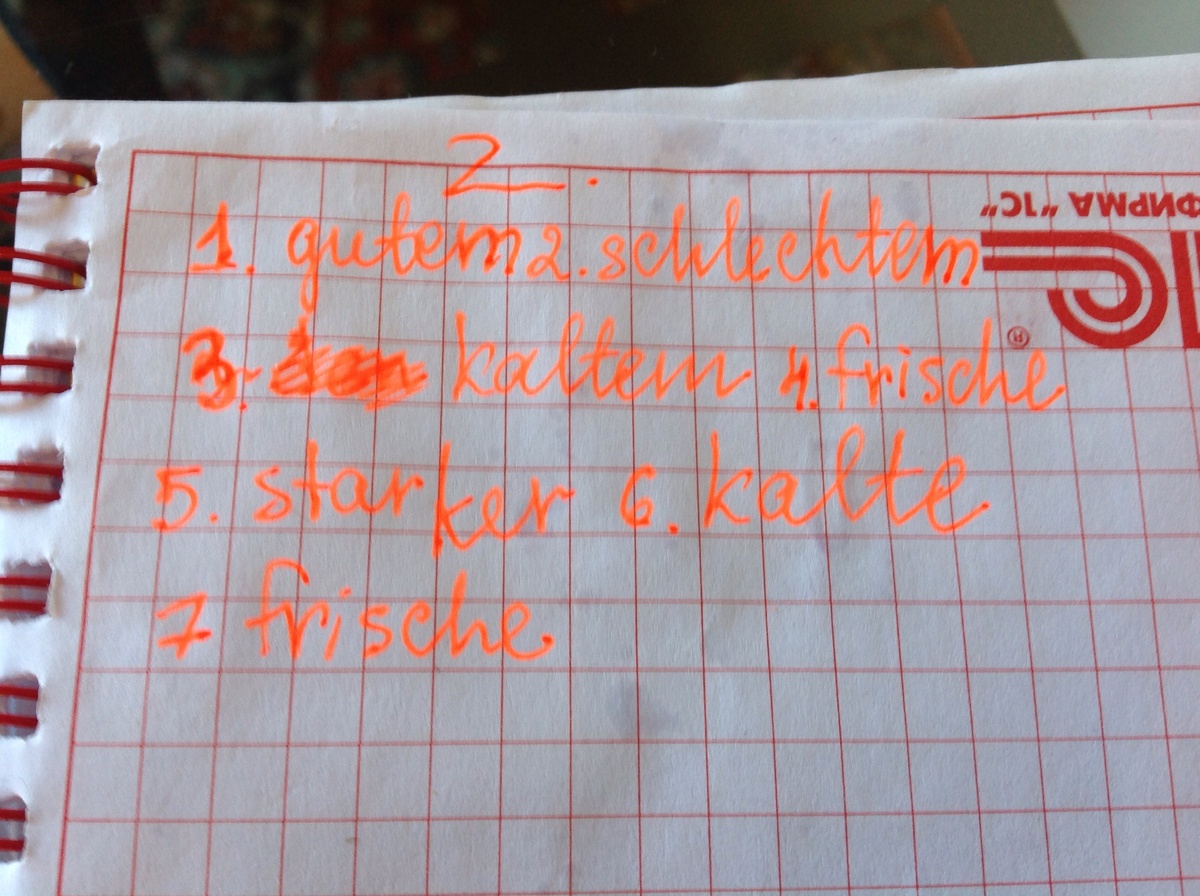 2.
1. gutem 2. schlechtem
ФИРМА "1С"
3. kaltem 4. frische
®
5. starker 6. kalte
7 frische